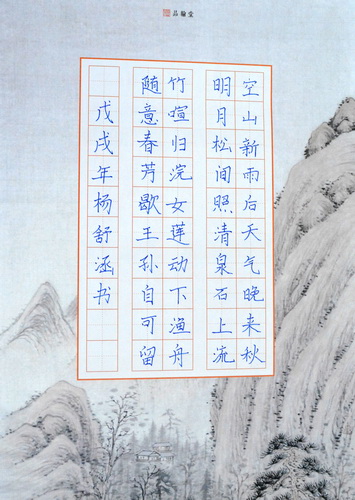 品翰堂
空山新雨后天气晚来秋
明月松间照清泉石上流
竹喧归浣女莲动下渔舟
随意春芳歇王孙自可留
戊戌年杨舒涵书